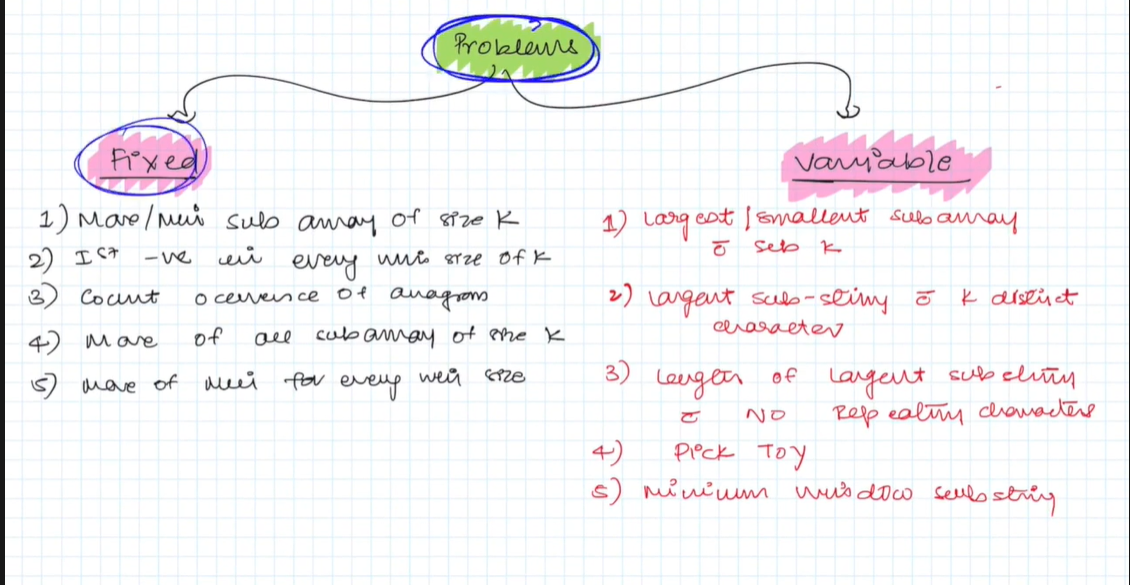 Problems
Fixed
Variable
1) Max/Min sub array of size K
2) Ist -ve in every win size of K
3) Count occurence of anagram
4) Max of all subarray of size K
5) Max of Min for every win size
1) Largest/smallest subarray
c̄ k
2) Largest sub-string c̄ K distinct
character
3) Length of Largest substring
c̄ NO Repeating characters
4) Pick Toy
5) Minimum window substring